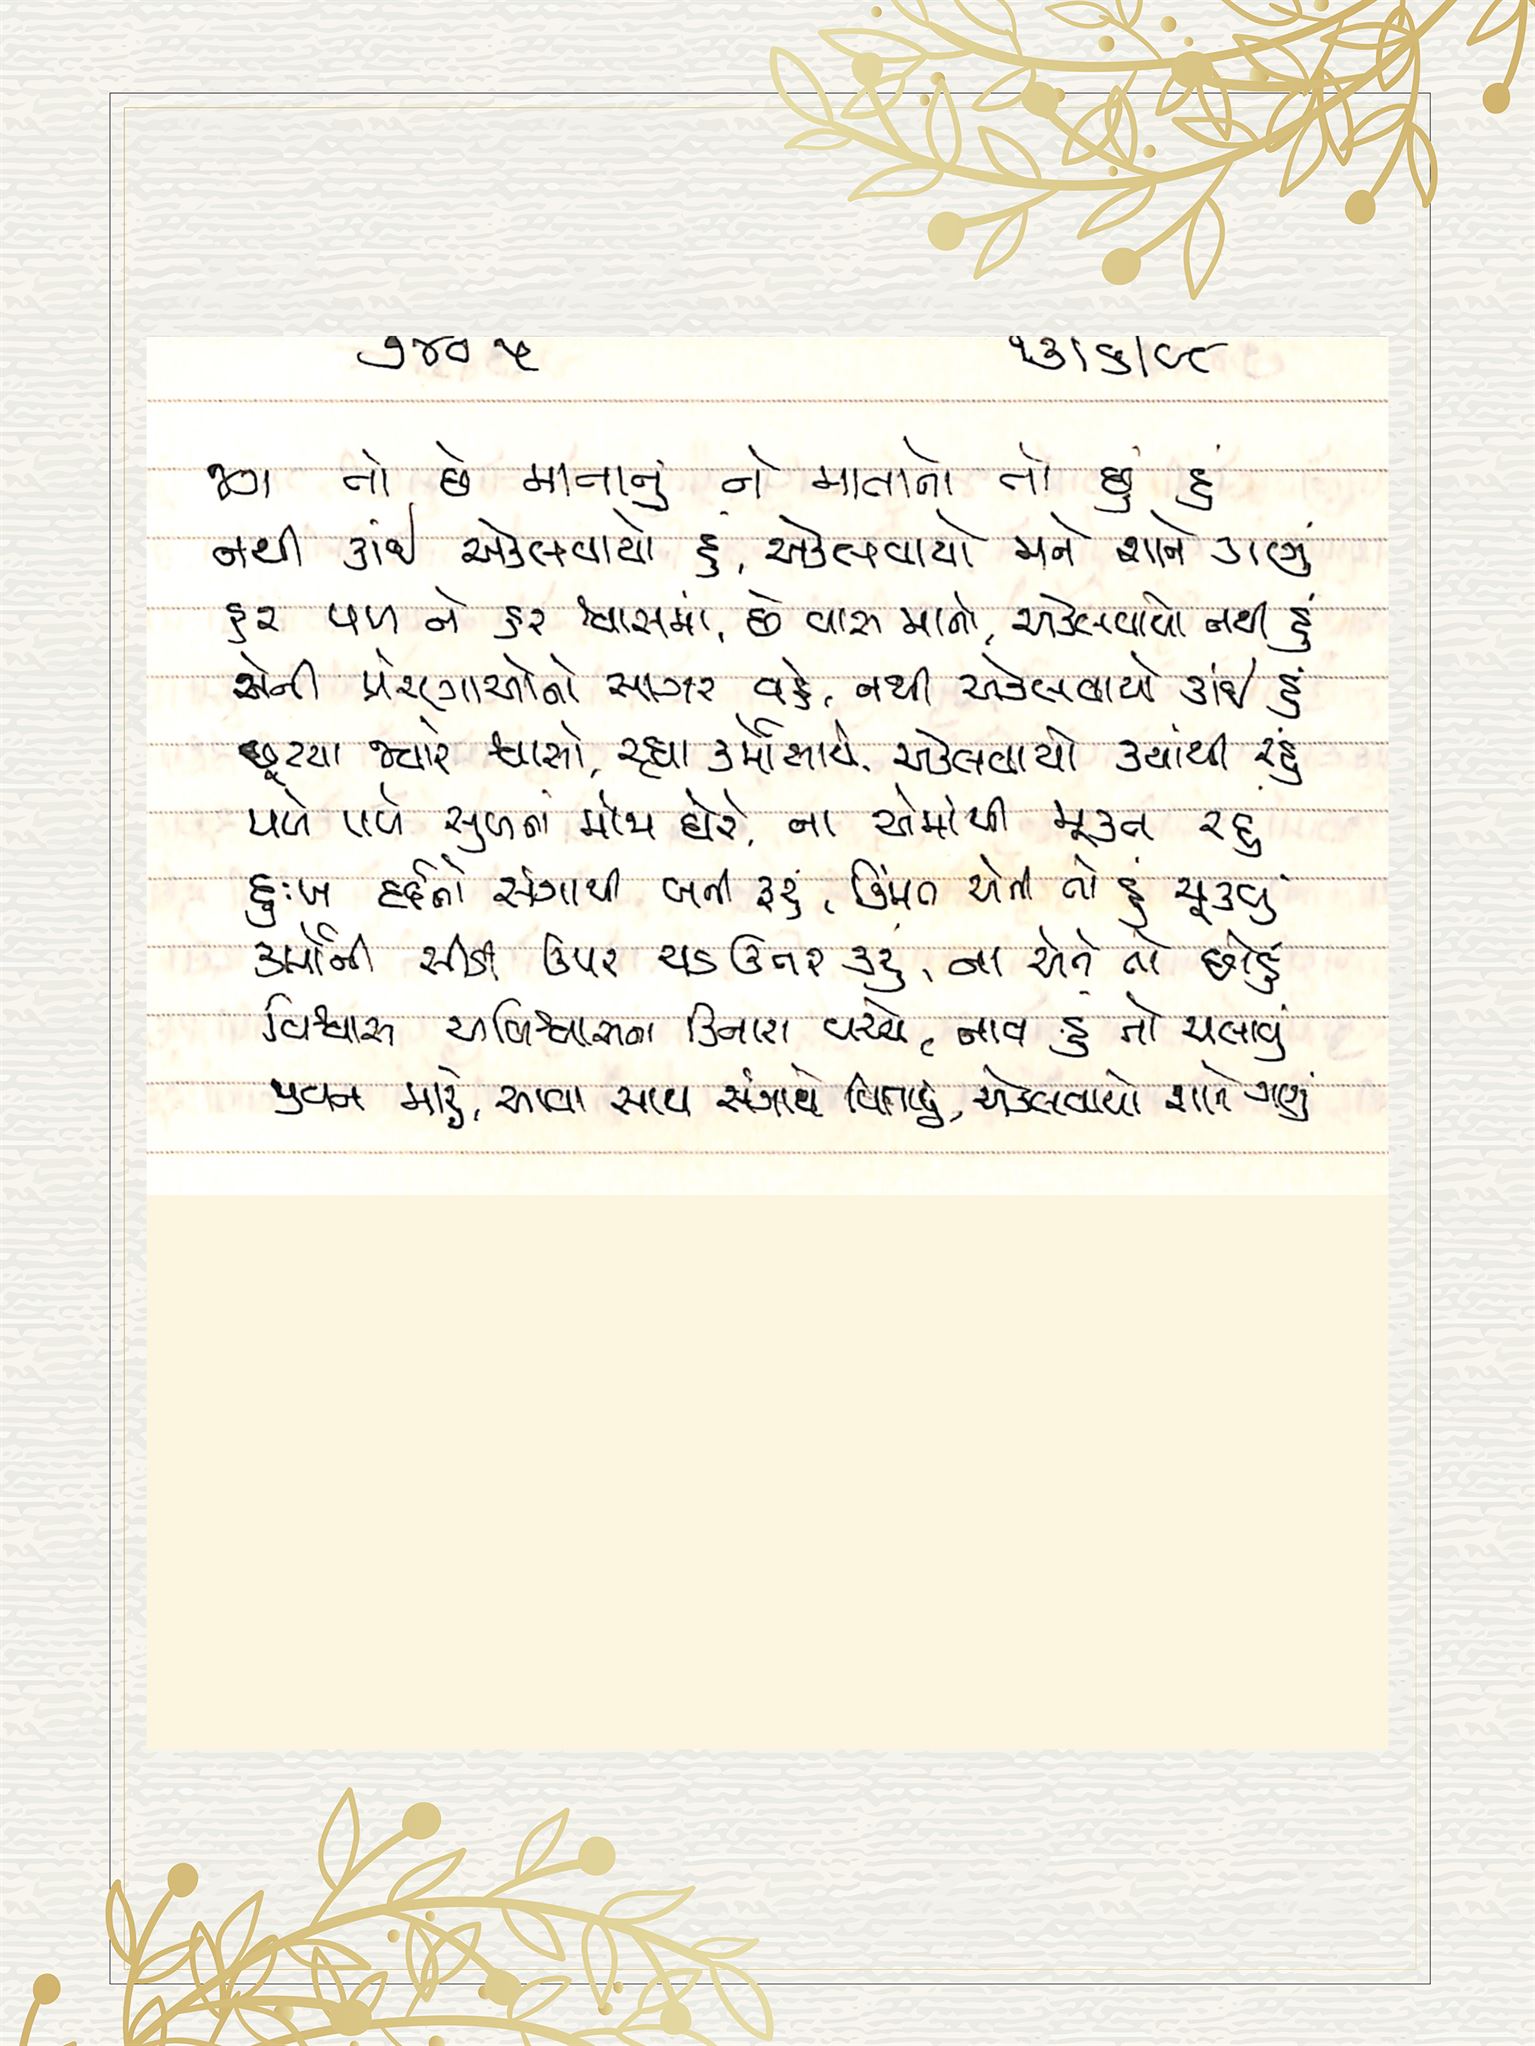 ૭૪૦૫ ૧૩/૬/૯૮
જગ તો છે માતાનું ને માતાનો તો છું હું
નથી કાંઈ એકલવાયો હું, એકલવાયો મને શાને ગણું
હર પળ ને હર શ્વાસમાં, છે વાસ માનો, એકલવાયો નથી હું
એની પ્રેરણાઓનો સાગર વહે, નથી એકલવાયો કાંઈ હું
છૂટયા જ્યારે શ્વાસો, રહ્યા કર્મો સાથે, એકલવાયો ક્યાંથી રહું
પળે પળે સુખનાં મોજા ઘેરે, ના એમાંથી મૂકત રહું
દુઃખ દર્દનો સંગાથી બની ફરું, કિંમત એની તો હું ચૂકવું
કર્મોની સીડી ઉપર ચડ ઊતર કરું, ના એને તો છોડું
વિશ્વાસ અવિશ્વાસના કિનારા વચ્ચે, નાવ હું તો ચલાવું
જીવન મારું, આવા સાથ સંગાથે વિતાવું, એકલવાયો શાને ગણું